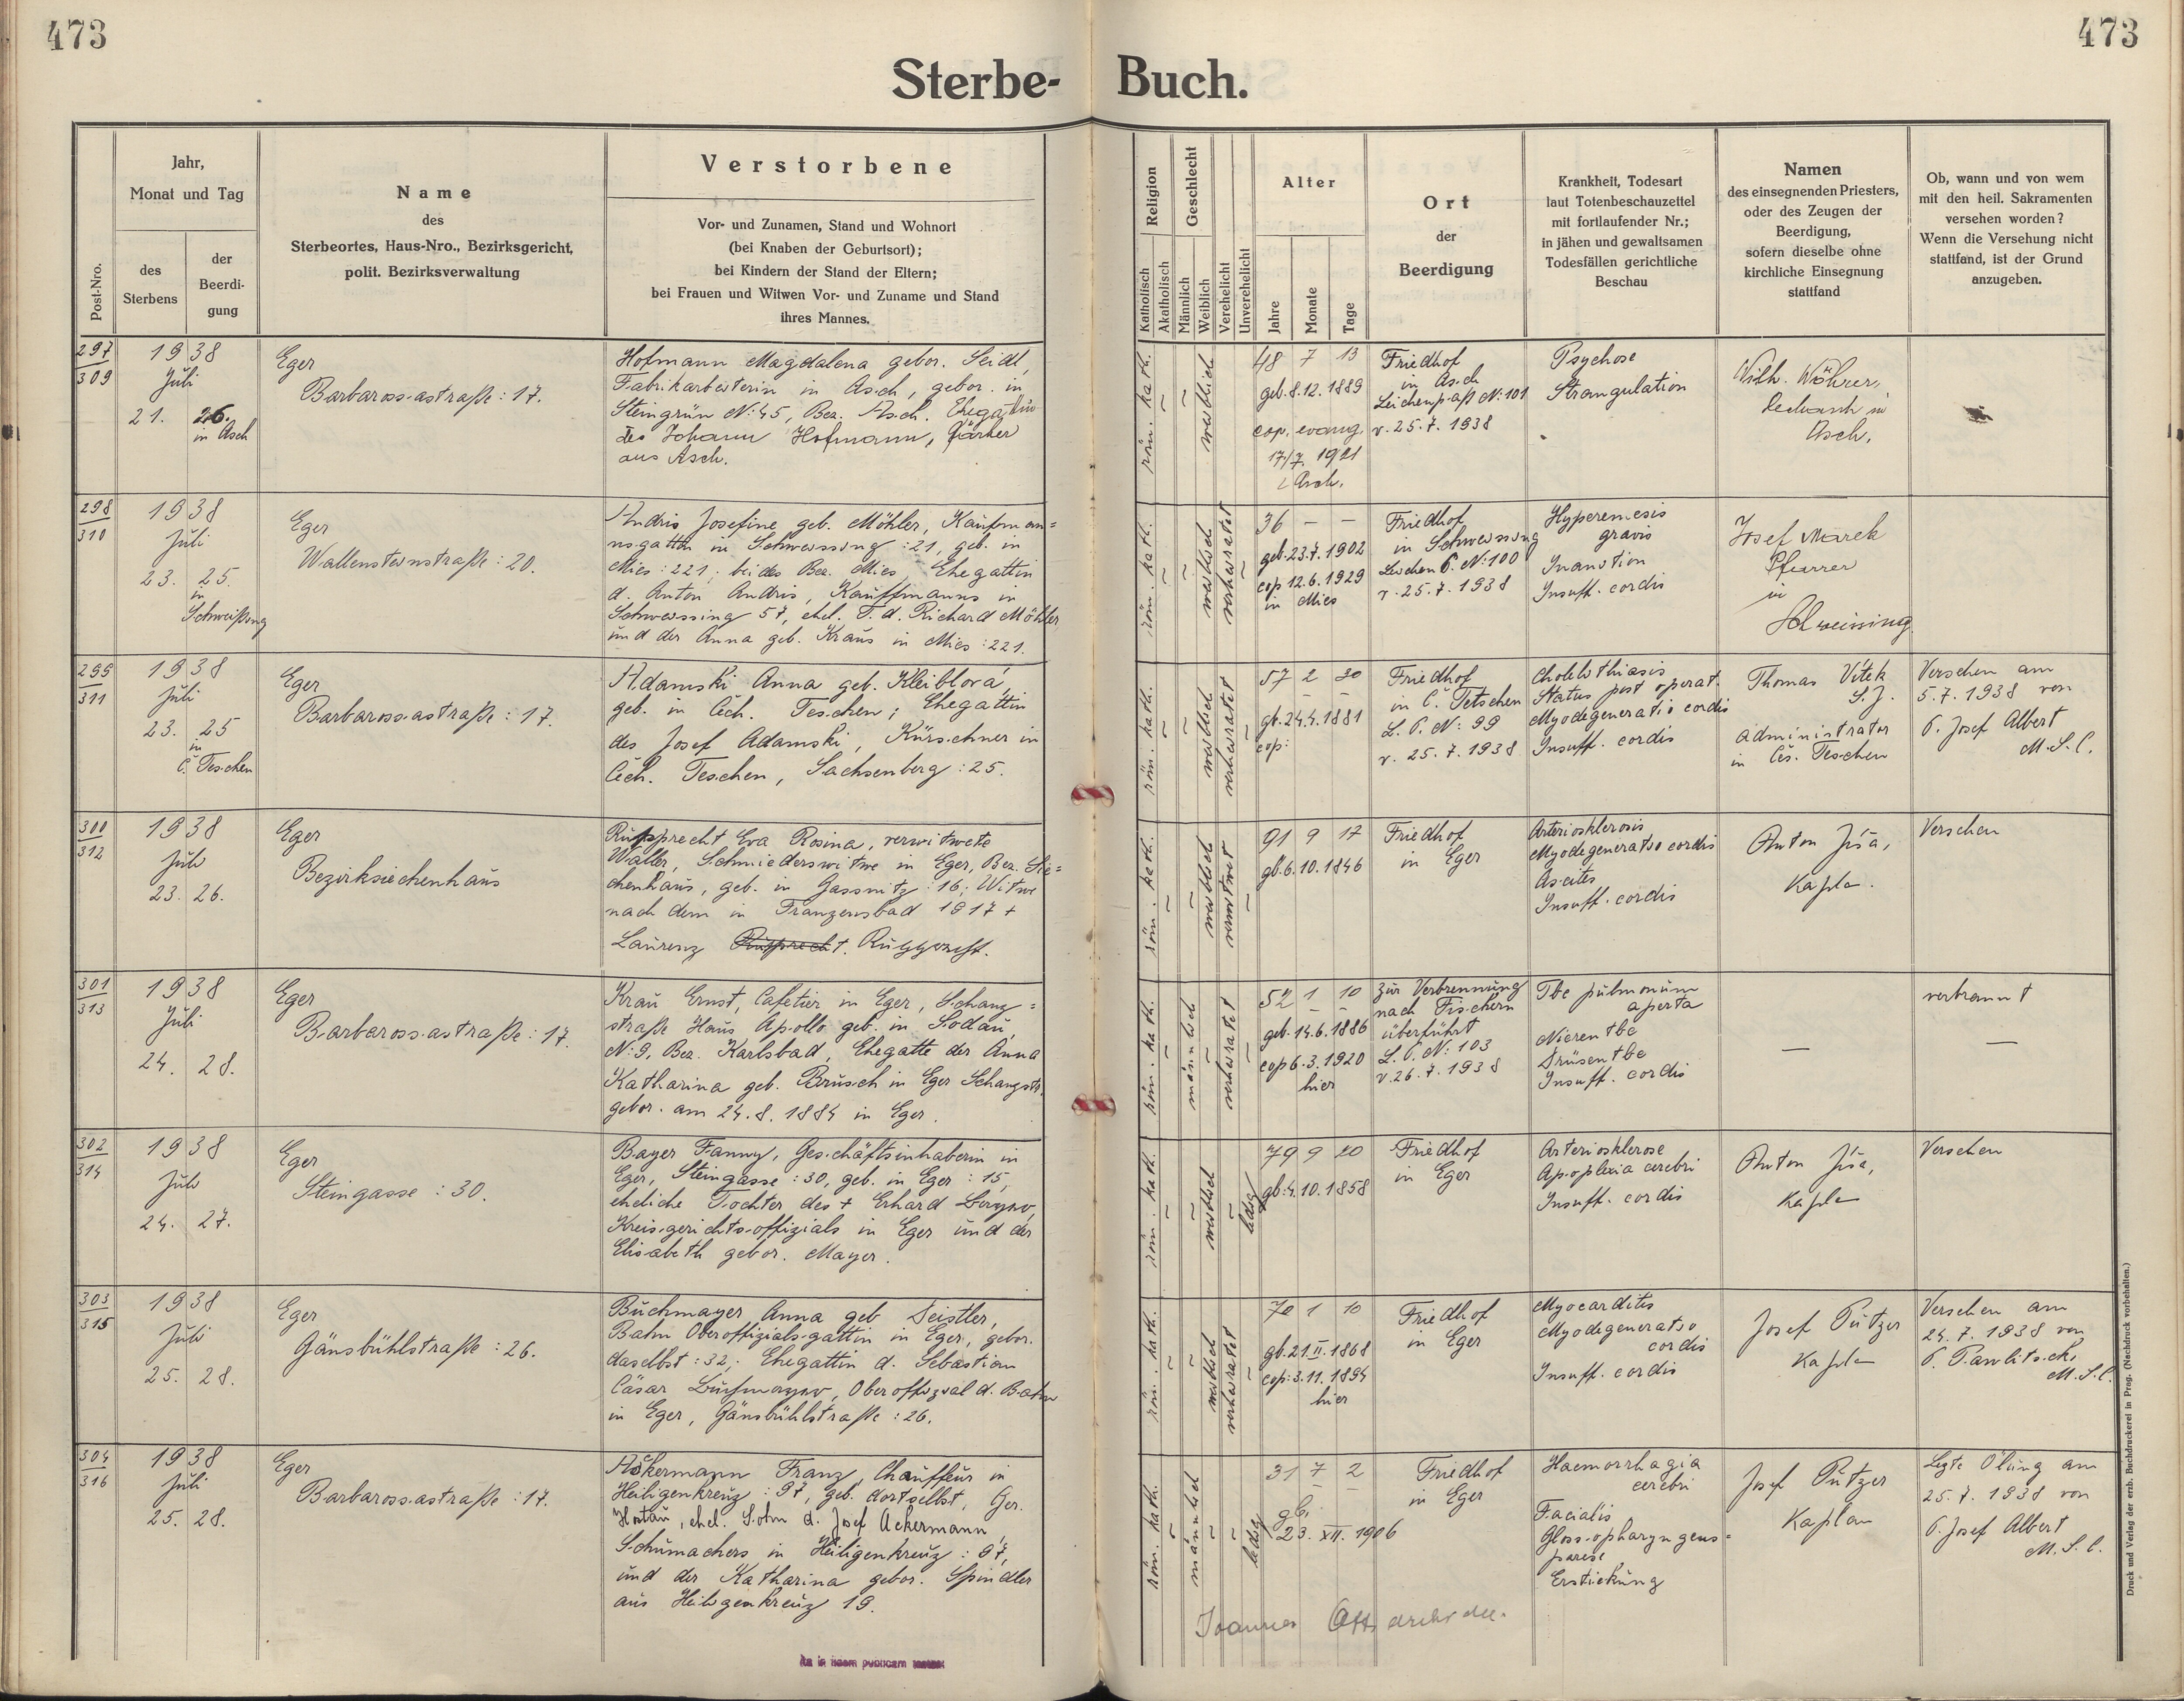 473
473
Sterbe- Buch.
Post-Nro.
Jahr,
Monat und Tag
des
Sterbens
der
Beerdi-
gung
Name
des
Sterbeortes, Haus-Nro., Bezirksgericht,
polit. Bezirksverwaltung
Verstorbene
Vor- und Zunamen, Stand und Wohnort
(bei Knaben der Geburtsort);
bei Kindern der Stand der Eltern;
bei Frauen und Witwen Vor- und Zuname und Stand
ihres Mannes.
Religion
Katholisch
Akatholisch
Geschlecht
Männlich
Weiblich
Verehelicht
Unverehelicht
Alter
Jahre
Monate
Tage
Ort
der
Beerdigung
Krankheit, Todesart
laut Totenbeschauzettel
mit fortlaufender Nr.;
in jähen und gewaltsamen
Todesfällen gerichtliche
Beschau
Namen
des einsegnenden Priesters,
oder des Zeugen der
Beerdigung,
sofern dieselbe ohne
kirchliche Einsegnung
stattfand
Ob, wann und von wem
mit den heil. Sakramenten
versehen worden?
Wenn die Versehung nicht
stattfand, ist der Grund
anzugeben.
297
309
1938
Juli
21. 26.
in Asch
Eger
Barbarossastraße: 17.
Hofmann Magdalena gebor. Seidl,
Fabrikarbeiterin in Asch, gebor. in
Steingrün N: 45, Bez. Asch. Ehegattin
des Johann Hofmann, Färber
aus Asch.
röm. kath.
weiblich
48 7 13
geb. 8.12.1889
cop. evang.
17/7. 1921
Asch.
Friedhof
in Asch
Leichenpaß N: 101
v. 25.7.1938
Psychose
Strangulation
Wilh. Wöhrer,
Dechant in
Asch.
298
310
1938
Juli
23. 25.
in
Schweißing
Eger
Wallensteinstraße: 20.
Andris Josefine geb. Möhler, Kaufman=
nsgattin in Schweissing: 21, geb. in
Mies: 221; beides Bez. Mies Ehegattin
d. Anton Andris, Kauffmanns in
Schweissing 57, ehel. T. d. Richard Möhler
und der Anna geb. Kraus in Mies: 221.
röm. kath.
weiblich
verheiratet
36 — —
geb. 23.7.1902
cop 12.6.1929
in Mies
Friedhof
in Schweissing
Leichen P. N: 100
v. 25.7.1938
Hyperemesis
gravis
Inanition
Insuff. cordis
Josef Marek
Pfarrer
in
Schweissing
299
311
1938
Juli
23. 25
in
Č. Teschen
Eger
Barbarossastraße: 17.
Adamski Anna geb. Kleiblová,
geb. in Čech. Teschen; Ehegattin
des Josef Adamski, Kürschner in
Čech. Teschen, Sachsenberg: 25.
röm. kath.
weiblich
verheiratet
57 2 30
gb. 24.4.1881
cop:
Friedhof
in Č. Tetschen
L. P. N: 99
v. 25.7.1938
Cholelithiasis
Status post operat.
Myodegeneratio cordis
Insuff. cordis
Thomas Vítek
S.J.
Administrator
in Čes. Teschen
Versehen am
5.7.1938 von
P. Josef Albert
M.S.C.
300
312
1938
Juli
23. 26.
Eger
Bezirksiechenhaus
Rupprecht Eva Rosina, verwitwete
Waller, Schmiederswitwe in Eger, Bez. Sie=
chenhaus, geb. in Gassnitz: 16; Witwe
nach dem in Franzensbad 1917 +
Laurenz Rupprecht. Rupprecht.
röm. kath.
weiblich
verwitwet
91 9 17
gb. 6.10.1846
Friedhof
in Eger
Arteriosklerosis
Myodegeneratio cordis
Ascites
Insuff. cordis
Anton Jíša,
Kapla.
Versehen
301
313
1938
Juli
24. 28.
Eger
Barbarossastraße: 17.
Krau Ernst, Cafetier in Eger, Schanz=
straße Haus Apollo geb. in Sodau,
N: 9, Bez. Karlsbad, Ehegatte der Anna
Katharina geb. Brusch in Eger Schanzstr.
gebor. am 24.8.1884 in Eger.
röm. kath.
männlich
verheiratet
52 1 10
geb. 14.6.1886
cop 6.3.1920
hier
zur Verbrennung
nach Fischern
überführt
L. P. N: 103
v. 26.7.1938
Tbc pulmonum
aperta
Nierentbc
Drüsentbc
Insuff. cordis
—
verbrannt
—
302
314
1938
Juli
24. 27.
Eger
Steingasse: 30.
Bayer Fanny, Geschäftsinhaberin in
Eger, Steingasse: 30, geb. in Eger: 15,
eheliche Tochter des + Erhard Bayer,
Kreisgerichtsoffizials in Eger und der
Elisabeth gebor. Mayer.
röm. kath.
weiblich
ledig
79 9 20
gb: 4.10.1858
Friedhof
in Eger
Arteriosklerose
Apoplexia cerebri
Insuff. cordis
Anton Jíša,
Kapla
Versehen
303
315
1938
Juli
25. 28.
Eger
Gänsbühlstraße: 26.
Buchmayer Anna geb Seistler,
Bahn Oberoffizialsgattin in Eger, gebor.
daselbst: 32; Ehegattin d. Sebastian
Cäsar Buchmayer, Oberoffizial d. Bahn
in Eger, Gänsbühlstraße: 26.
röm. kath.
weiblich
verheiratet
70 1 10
gb. 21.II.1868
cop: 3.11.1894
hier
Friedhof
in Eger
Myocarditis
Myodegeneratio
cordis
Insuff. cordis
Josef Putzer
Kapla
Versehen am
24.7.1938 von
P. Pawlitschi,
M.S.C.
304
316
1938
Juli
25. 28.
Eger
Barbarossastraße: 17.
Ackermann Franz, Chauffeur in
Heiligenkreuz: 97, geb. dortselbst, Ger.
Hostau, ehel. Sohn d. Josef Ackermann,
Schumachers in Heiligenkreuz: 97,
und der Katharina gebor. Spindler
aus Heiligenkreuz 19.
röm. kath.
männlich
ledig
31 7 2
gb.
23. XII. 1906
Friedhof
in Eger
Haemorrhagia
cerebri
Facialis
Glossopharyngeus=
parese
Erstickung
Josef Putzer
Kaplan
Legte Ölung am
25.7.1938 von
P. Josef Albert
M.S.C.
Joannes
Druck und Verlag der erzb. Buchdruckerei in Prag. (Nachdruck vorbehalten.)